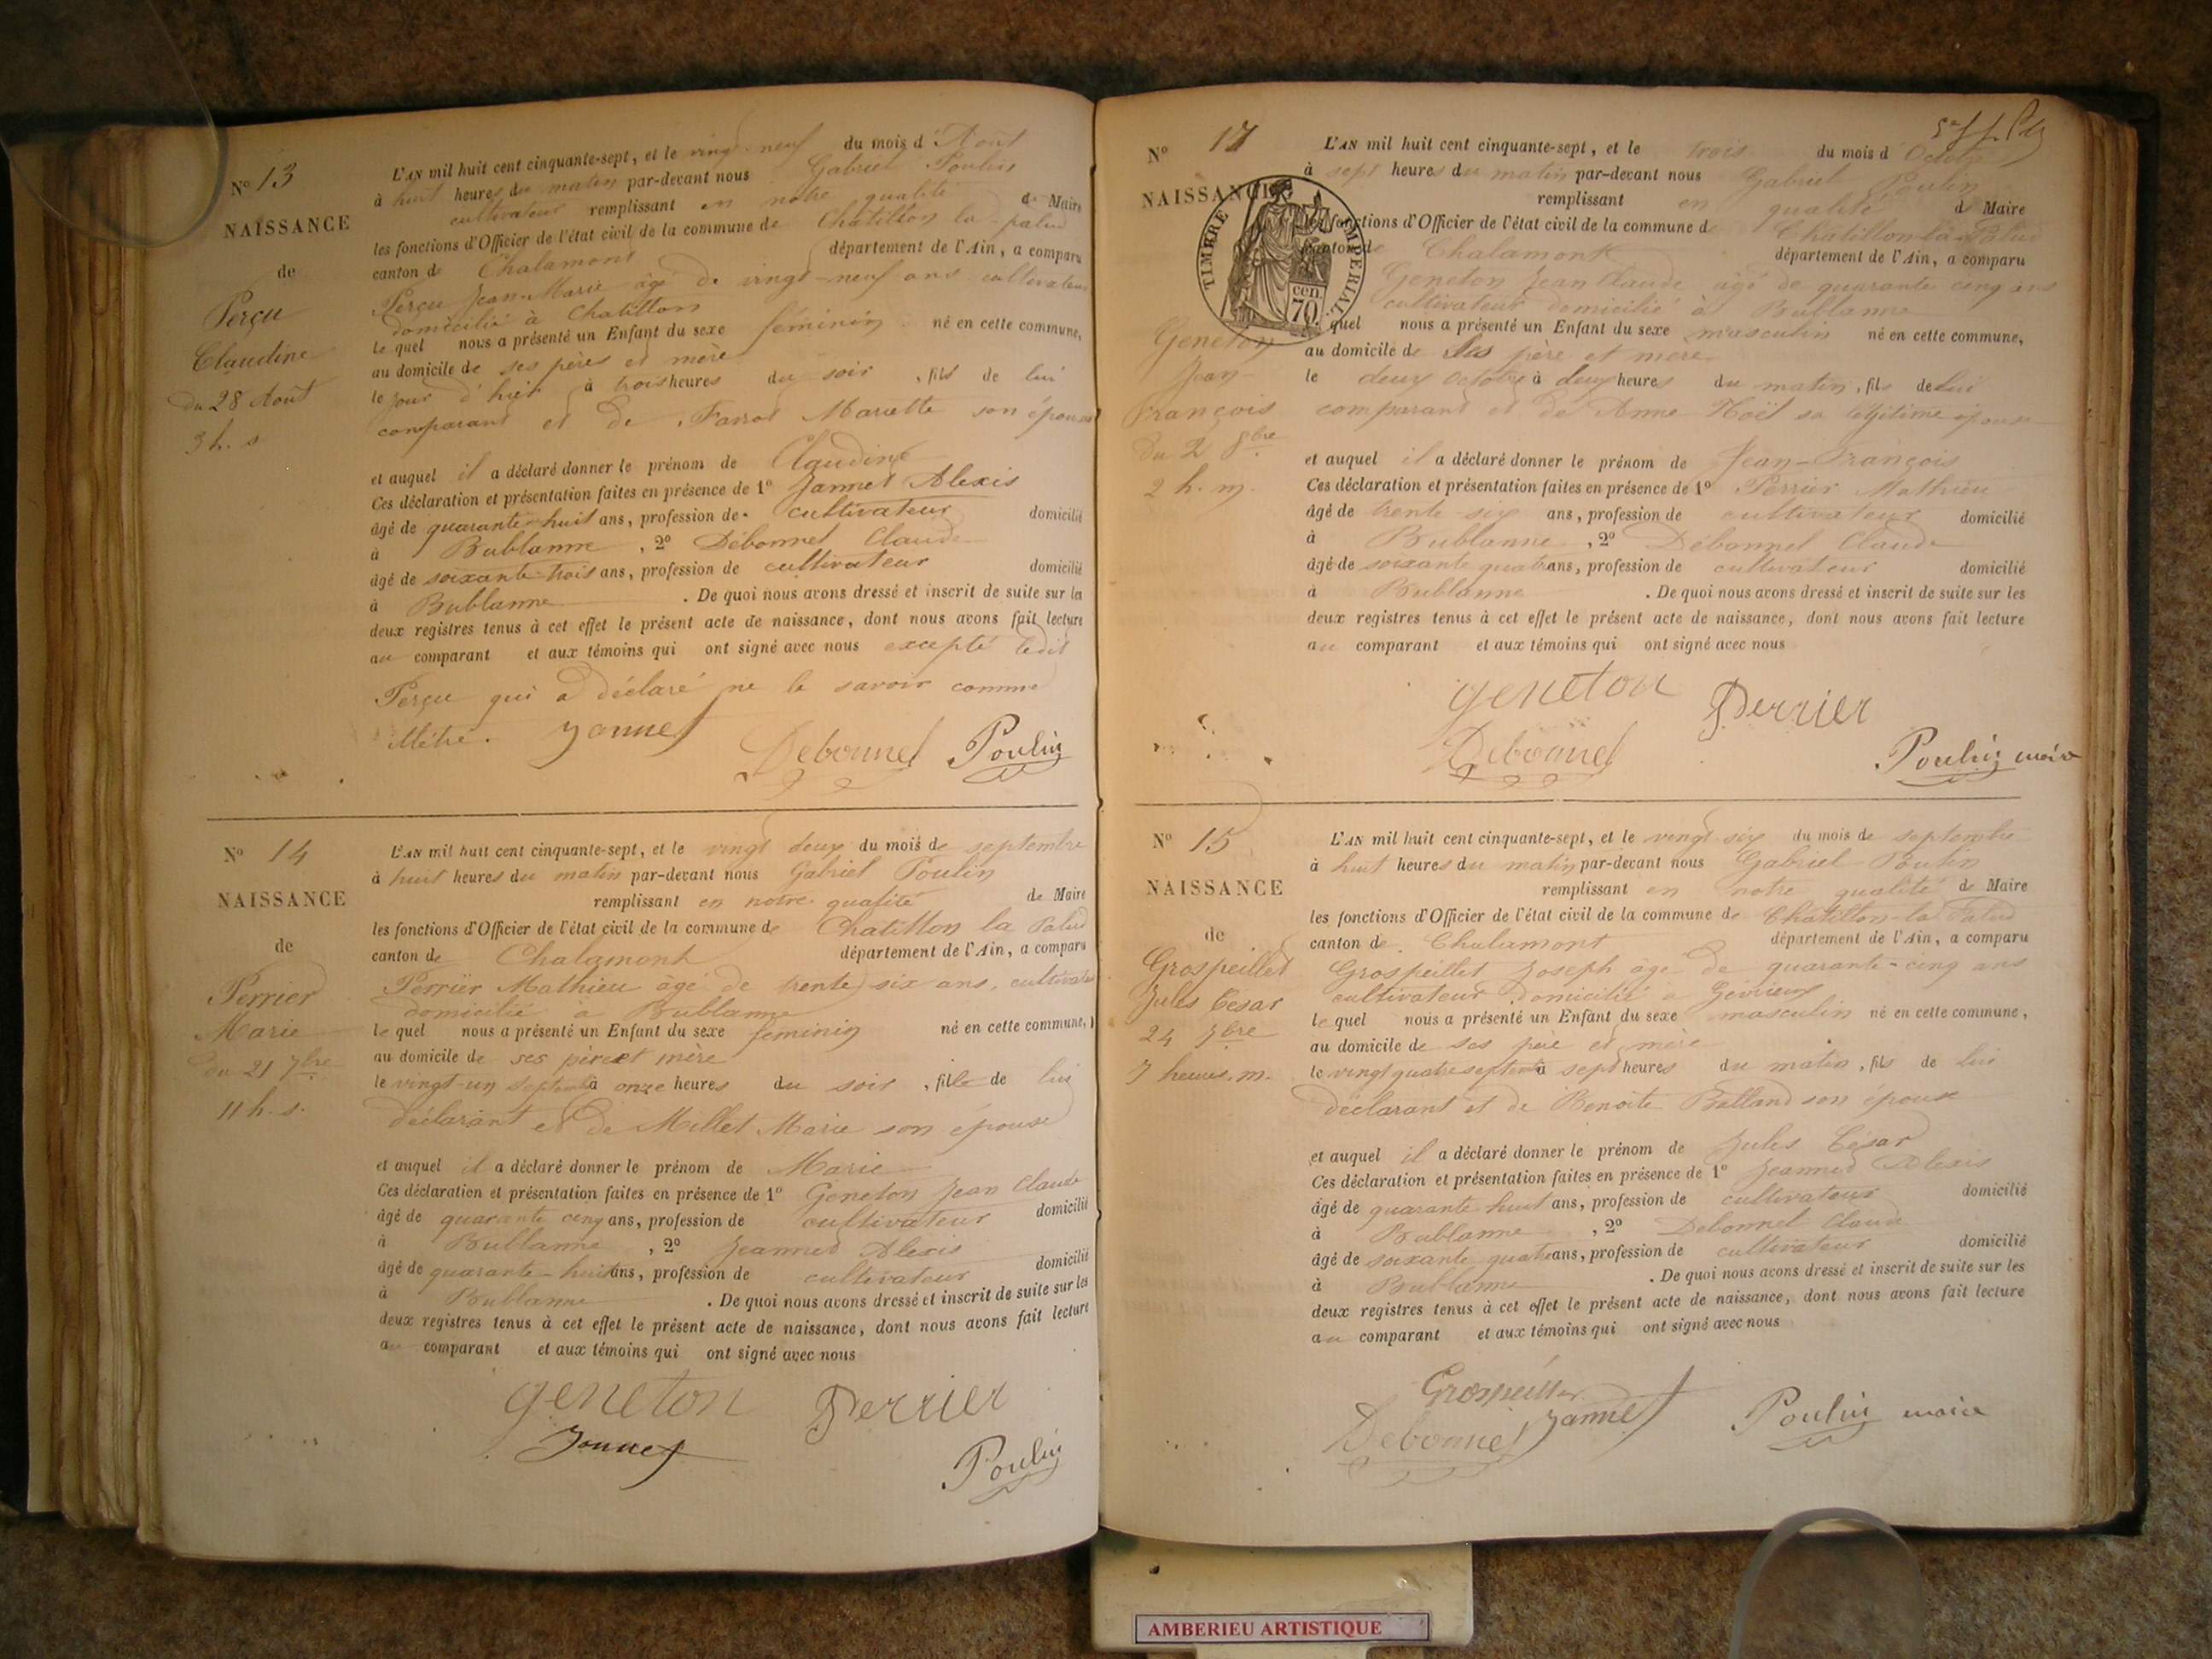 N° 13
NAISSANCE
de
Perçu
Claudine
du 28 Août
3 h. s
L'AN mil huit cent cinquante-sept, et le vingt-neuf du mois d'Août
à huit heures du matin par-devant nous Gabriel Poulin
cultivateur remplissant en notre qualité de Maire
les fonctions d'Officier de l'état civil de la commune de Chatillon la palud
canton de Chalamont département de l'Ain, a comparu
Perçu Jean-Marie âgé de vingt-neuf ans cultivateur
domicilié à Chatillon
le quel nous a présenté un Enfant du sexe féminin né en cette commune,
au domicile de ses pères et mère
le jour d'hier à trois heures du soir, fils de lui
comparant et de Mariette son épouse
et auquel il a déclaré donner le prénom de Claudine
Ces déclaration et présentation faites en présence de 1° Jannet Alexis
âgé de quarante-huit ans, profession de cultivateur domicilié
à Bublanne, 2° Débonnel Claude
âgé de soixante-trois ans, profession de cultivateur domicilié
à Bublanne. De quoi nous avons dressé et inscrit de suite sur les
deux registres tenus à cet effet le présent acte de naissance, dont nous avons fait lecture
au comparant et aux témoins qui ont signé avec nous excepté ledit
Perçu qui a déclaré ne le savoir comme
illétré. Jannet Debonnel Poulin
N° 14
NAISSANCE
de
Perrier
Marie
du 21 7bre
11 h. s.
L'AN mil huit cent cinquante-sept, et le vingt deux du mois de septembre
à huit heures du matin par-devant nous Gabriel Poulin
remplissant en notre qualité de Maire
les fonctions d'Officier de l'état civil de la commune de Chatillon la Palud
canton de Chalamont département de l'Ain, a comparu
Perrier Mathieu âgé de trente six ans, cultivateur
domicilié à Bublanne
le quel nous a présenté un Enfant du sexe féminin né en cette commune,
au domicile de ses père et mère
le vingt-un septembre à onze heures du soir, fille de lui
déclarant et de Millet Marie son épouse
et auquel il a déclaré donner le prénom de Marie
Ces déclaration et présentation faites en présence de 1° Geneton Jean Claude
âgé de quarante cinq ans, profession de cultivateur domicilié
à Bublanne, 2° Jeannet Alexis
âgé de quarante-huit ans, profession de cultivateur domicilié
à Bublanne. De quoi nous avons dressé et inscrit de suite sur les
deux registres tenus à cet effet le présent acte de naissance, dont nous avons fait lecture
au comparant et aux témoins qui ont signé avec nous
geneton Perrier
Jannet
Poulin
N° 17
NAISSANCE
Geneton
Jean-
François
du 2 8bre
2 h. m.
TIMBRE IMPERIAL
cen. 70.
L'AN mil huit cent cinquante-sept, et le trois du mois d'Octobre
à sept heures du matin par-devant nous Gabriel Poulin
remplissant en qualité d Maire
les fonctions d'Officier de l'état civil de la commune de Chatillon-la-Palud
canton de Chalamont département de l'Ain, a comparu
Geneton Jean Claude âgé de quarante cinq ans
cultivateur domicilié à Bublanne
le quel nous a présenté un Enfant du sexe masculin né en cette commune,
au domicile de ses père et mere
le deux Octobre à deux heures du matin, fils de lui
comparant et de Anne Noël sa légitime épouse
et auquel il a déclaré donner le prénom de Jean-François
Ces déclaration et présentation faites en présence de 1° Perrier Mathieu
âgé de trente-six ans, profession de cultivateur domicilié
à Bublanne, 2° Débonnel Claude
âgé de soixante quatre ans, profession de cultivateur domicilié
à Bublanne. De quoi nous avons dressé et inscrit de suite sur les
deux registres tenus à cet effet le présent acte de naissance, dont nous avons fait lecture
au comparant et aux témoins qui ont signé avec nous
geneton Perrier
Debonnel
Poulin maire
N° 15
NAISSANCE
de
Grospeillet
Jules César
24 7bre
7 heures. m.
L'AN mil huit cent cinquante-sept, et le vingt-six du mois de septembre
à huit heures du matin par-devant nous Gabriel Poulin
remplissant en notre qualité de Maire
les fonctions d'Officier de l'état civil de la commune de Chatillon-la Palud
canton de Chalamont département de l'Ain, a comparu
Grospeillet Joseph âgé de quarante-cinq ans
cultivateur domicilié à Gévrieux
le quel nous a présenté un Enfant du sexe masculin né en cette commune,
au domicile de ses père et mère
le vingt quatre septembre à sept heures du matin, fils de lui
déclarant et de Benoite Balland son épouse
et auquel il a déclaré donner le prénom de Jules César
Ces déclaration et présentation faites en présence de 1° Jeannet Alexis
âgé de quarante huit ans, profession de cultivateur domicilié
à Bublanne, 2° Debonnel Claude
âgé de soixante quatre ans, profession de cultivateur domicilié
à Bublanne. De quoi nous avons dressé et inscrit de suite sur les
deux registres tenus à cet effet le présent acte de naissance, dont nous avons fait lecture
au comparant et aux témoins qui ont signé avec nous
Grospeillet
Debonnel Jannet Poulin maire
AMBERIEU ARTISTIQUE